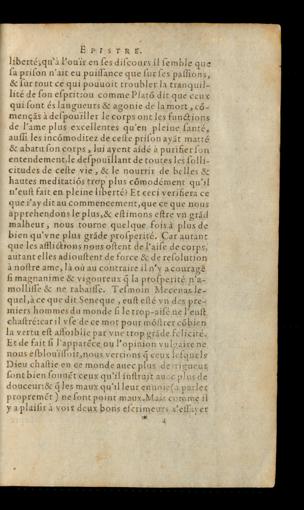 EPISTRE.
liberté, qu'à l'ouïr en ses discours il semble que
sa prison n'ait eu puissance que sur ses passions,
& sur tout ce qui pouuoit troubler la tranquil-
lité de son esprit: ou comme Platō dit que ceux
qui sont és langueurs & agonie de la mort, cō-
mençās à despouiller le corps ont les functions
de l'ame plus excellentes qu'en pleine santé,
aussi les incōmoditez de ceste prison ayāt matté
& abatu son corps, lui ayent aidé à purifier son
entendement, le despouillant de toutes les solli-
citudes de ceste vie, & le nourrir de belles &
hautes meditatiōs trop plus cōmodément qu'il
n'eust fait en pleine liberté? Et ceci verifiera ce
que i'ay dit au commencement, que ce que nous
apprehendons le plus, & estimons estre vn grād
malheur, nous tourne quelque fois à plus de
bien qu'vne plus grāde prosperité. Car autant
que les afflictions nous ostent de l'aise de corps,
autant elles adioustent de force & de resolution
à nostre ame, là où au contraire il n'y a courage
si magnanime & vigoureux q̄ la prosperité n'a-
mollisse & ne rabaisse. Tesmoin Mecenas le-
quel, à ce que dit Seneque, eust esté vn des pre-
miers hommes du monde si le trop-aise ne l'eust
chastré: car il vse de ce mot pour mōstrer cōbien
la vertu est affoiblie par vne trop grāde felicité.
Et de fait si l'apparēce ou l'opinion vulgaire ne
nous esblouïssoit, nous verrions q̄ ceux lesquels
Dieu chastie en ce monde auec plus de rigueur
sont bien souuēt ceux qu'il instruit auec plus de
douceur: & q̄ les maux qu'il leur enuoie (à parler
propremēt) ne sont point maux. Mais comme il
y a plaisir à voir deux bons escrimeurs s'essayer